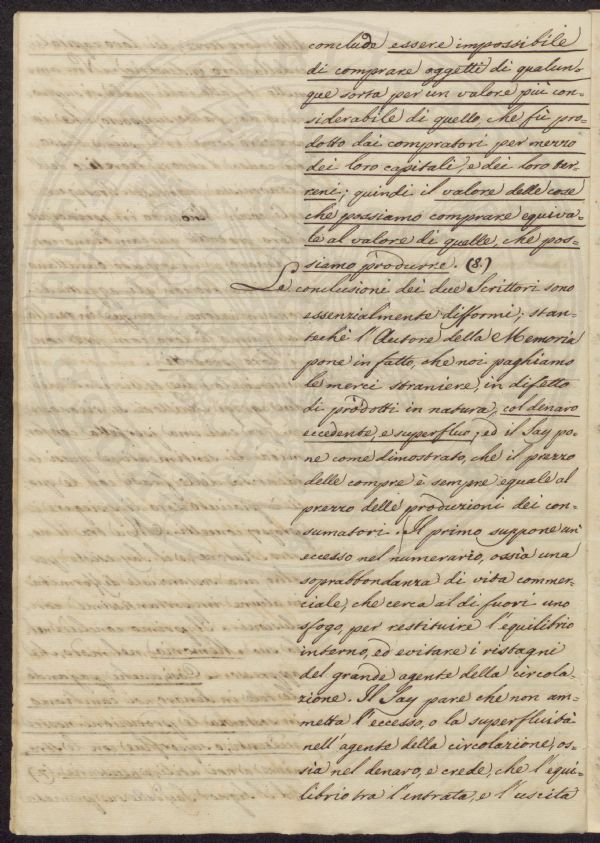 conclude essere impossibile
di comprare oggetti di qualun-
que sorta per un valore più con-
siderabile di quello, che fù pro-
dotto dai compratori per mezzo
dei loro capitali, e dei loro ter-
reni; quindi il valore delle cose
che possiamo comprare equiva-
le al valore di quelle, che pos-
siamo produrre. (8.)
Le conclusioni dei due Scrittori sono
essenzialmente difformi; stan-
techè l'Autore della Memoria
pone in fatto, che noi paghiamo
le merci straniere, in difetto
di prodotti in natura, col denaro
eccedente, e superfluo; ed il Say po-
ne come dimostrato, che il prezzo
delle compre è sempre eguale al
prezzo delle produzioni dei con-
sumatori. Il primo suppone un
eccesso nel numerario, ossia una
soprabbondanza di vita commer-
ciale, che cerca al di fuori uno
sfogo, per restituire l'equilibrio
interno, ed evitare i ristagni
del grande agente della circola-
zione. Il Say pare che non am-
metta l'eccesso, o la superfluità
nell'agente della circolazione, os-
sia nel denaro, e crede, che l'equi-
librio tra l'entrata, e l'uscita